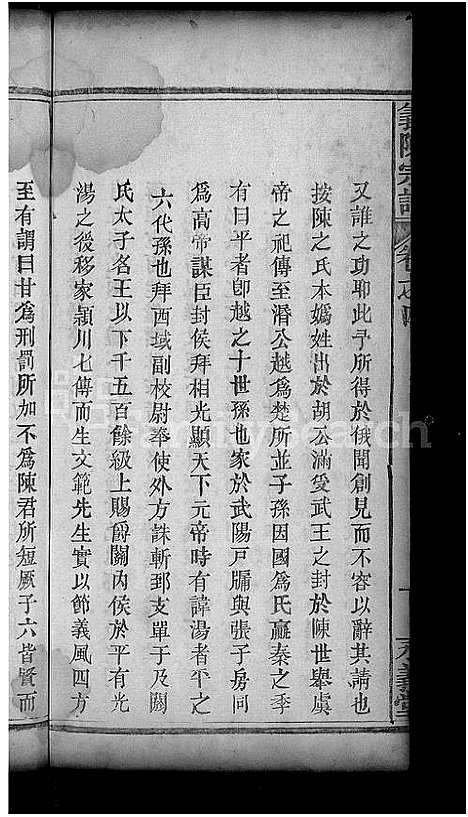 義陳宗譜
又誰之功耶此予所得於俄聞創見而不容以辭其請也
按陳之氏本媯姓出於胡公滿受武王之封於陳世舉虞
帝之祀傳至潛公越爲楚所並子孫因國爲氏嬴秦之季
有曰平者卽越之十世孫也家於武陽戸牖與張子房同
爲高帝謀臣封侯拜相光顯天下元帝時有諱湯者平之
六代孫也拜西域副校尉奉使外方誅斬郅支單于及閼
氏太子名王以下千五百餘級上賜爵關內侯於平有光
湯之後移家潁川七傳而生文範先生實以節義風四方
至有謂曰甘爲刑罰所加不爲陳君所短厥子六皆賢而
FamilySearch